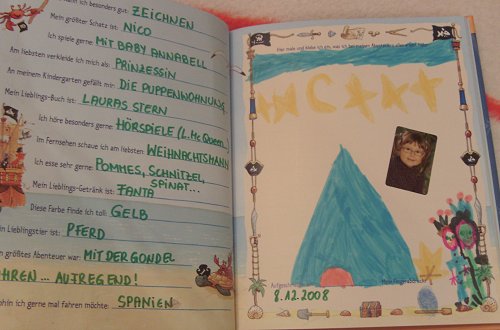 kann ich besonders gut: ZEICHNEN
Mein größter Schatz ist: NICO
Ich spiele gerne: MIT BABY ANNABELL
Am liebsten verkleide ich mich als: PRINZESSIN
An meinem Kindergarten gefällt mir: DIE PUPPENWOHNUNG
Mein Lieblings-Buch ist: LAURAS STERN
Ich höre besonders gerne: HÖRSPIELE (L. Mc Queen)
Im Fernsehen schaue ich am liebsten: WEIHNACHTSMANN
Ich esse sehr gerne: POMMES, SCHNITZEL,
SPINAT...
Mein Lieblings-Getränk ist: FANTA
Diese Farbe finde ich toll: GELB
n Lieblingstier ist: PFERD
größtes Abenteuer war: MIT DER GONDEL
HREN... AUFREGEND!
hin ich gerne mal fahren möchte: SPANIEN
Hier male und klebe ich ein, was
8.12.2008
Mein Fingerabdruck: